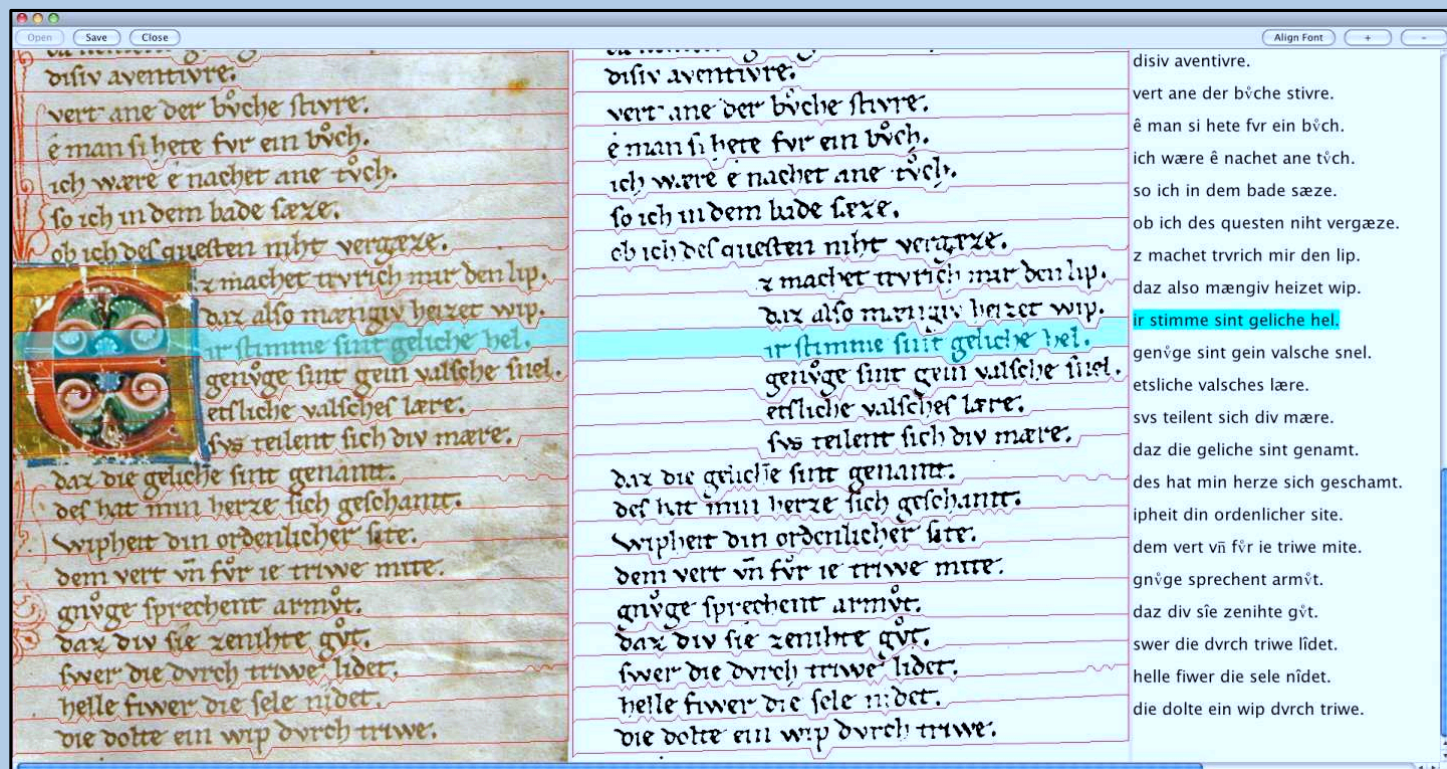 Open Save Close Align Font + -
diſiv aventivre.
vert ane der bvͦche ſtivre.
ê man ſi hete fvr ein bvͦch.
ich wære ê nachet ane tvͦch.
ſo ich in dem bade ſæze.
ob ich deſ queſten niht vergæze.
z machet trvrich mir den lip.
daz alſo mængiv heizet wip.
ir ſtimme ſint geliche hel.
genvͦge ſint gein valſche ſnel.
etſliche valſcheſ lære.
ſvs teilent ſich div mære.
daz die geliche ſint genamt.
deſ hat min herze ſich geſchamt.
wipheit din ordenlicher ſite.
dem vert vn̄ fvͦr ie triwe mite.
gnvͦge ſprechent armvͦt.
daz div ſîe zenihte gvͦt.
ſwer die dvrch triwe lîdet.
helle fiwer die ſele nîdet.
die dolte ein wip dvrch triwe.
diſiv aventivre.
vert ane der bvͦche ſtivre.
ê man ſi hete fvr ein bvͦch.
ich wære ê nachet ane tvͦch.
ſo ich in dem bade ſæze.
ob ich deſ queſten niht vergæze.
z machet trvrich mir den lip.
daz alſo mængiv heizet wip.
ir ſtimme ſint geliche hel.
genvͦge ſint gein valſche ſnel.
etſliche valſcheſ lære.
ſvs teilent ſich div mære.
daz die geliche ſint genamt.
deſ hat min herze ſich geſchamt.
wipheit din ordenlicher ſite.
dem vert vn̄ fvͦr ie triwe mite.
gnvͦge ſprechent armvͦt.
daz div ſîe zenihte gvͦt.
ſwer die dvrch triwe lîdet.
helle fiwer die ſele nîdet.
die dolte ein wip dvrch triwe.
disiv aventivre.
vert ane der bvͦche stivre.
ê man si hete fvr ein bvͦch.
ich wære ê nachet ane tvͦch.
so ich in dem bade sæze.
ob ich des questen niht vergæze.
z machet trvrich mir den lip.
daz also mængiv heizet wip.
ir stimme sint geliche hel.
genvͦge sint gein valsche snel.
etsliche valsches lære.
svs teilent sich div mære.
daz die geliche sint genamt.
des hat min herze sich geschamt.
ipheit din ordenlicher site.
dem vert vn̄ fvͦr ie triwe mite.
gnvͦge sprechent armvͦt.
daz div sîe zenihte gvͦt.
swer die dvrch triwe lîdet.
helle fiwer die sele nîdet.
die dolte ein wip dvrch triwe.